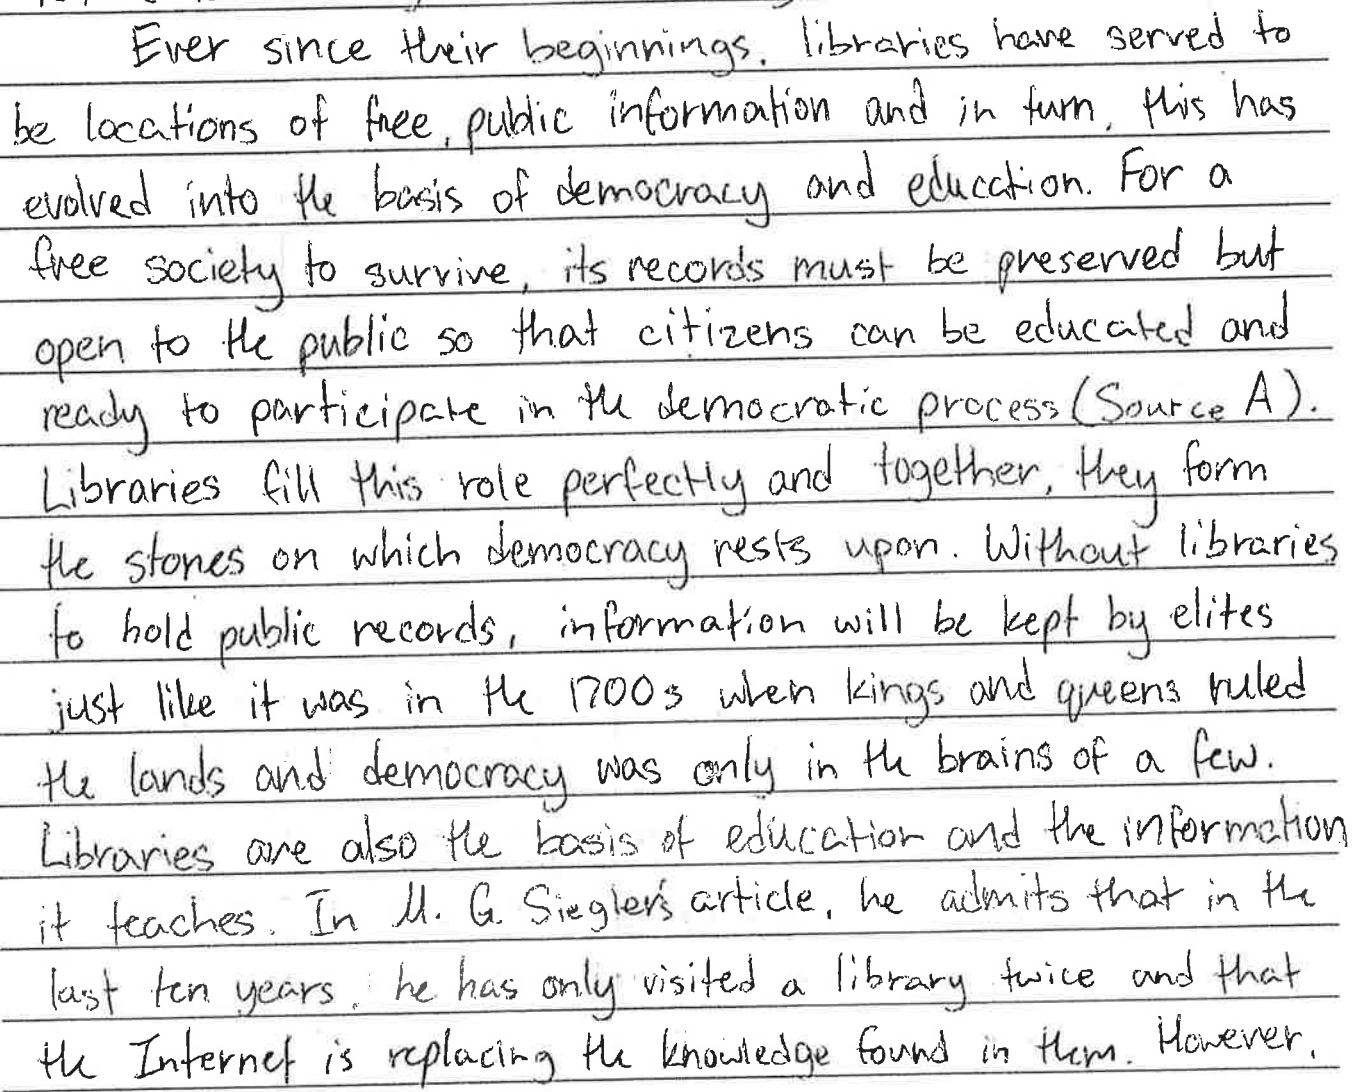 Ever since their beginnings, libraries have served to
be locations of free, public information and in turn, this has
evolved into the basis of democracy and education. For a
free society to survive, its records must be preserved but
open to the public so that citizens can be educated and
ready to participate in the democratic process (Source A).
Libraries fill this role perfectly and together, they form
the stones on which democracy rests upon. Without libraries
to hold public records, information will be kept by elites
just like it was in the 1700s when kings and queens ruled
the lands and democracy was only in the brains of a few.
Libraries are also the basis of education and the information
it teaches. In M. G. Siegler's article, he admits that in the
last ten years, he has only visited a library twice and that
the Internet is replacing the knowledge found in them. However,